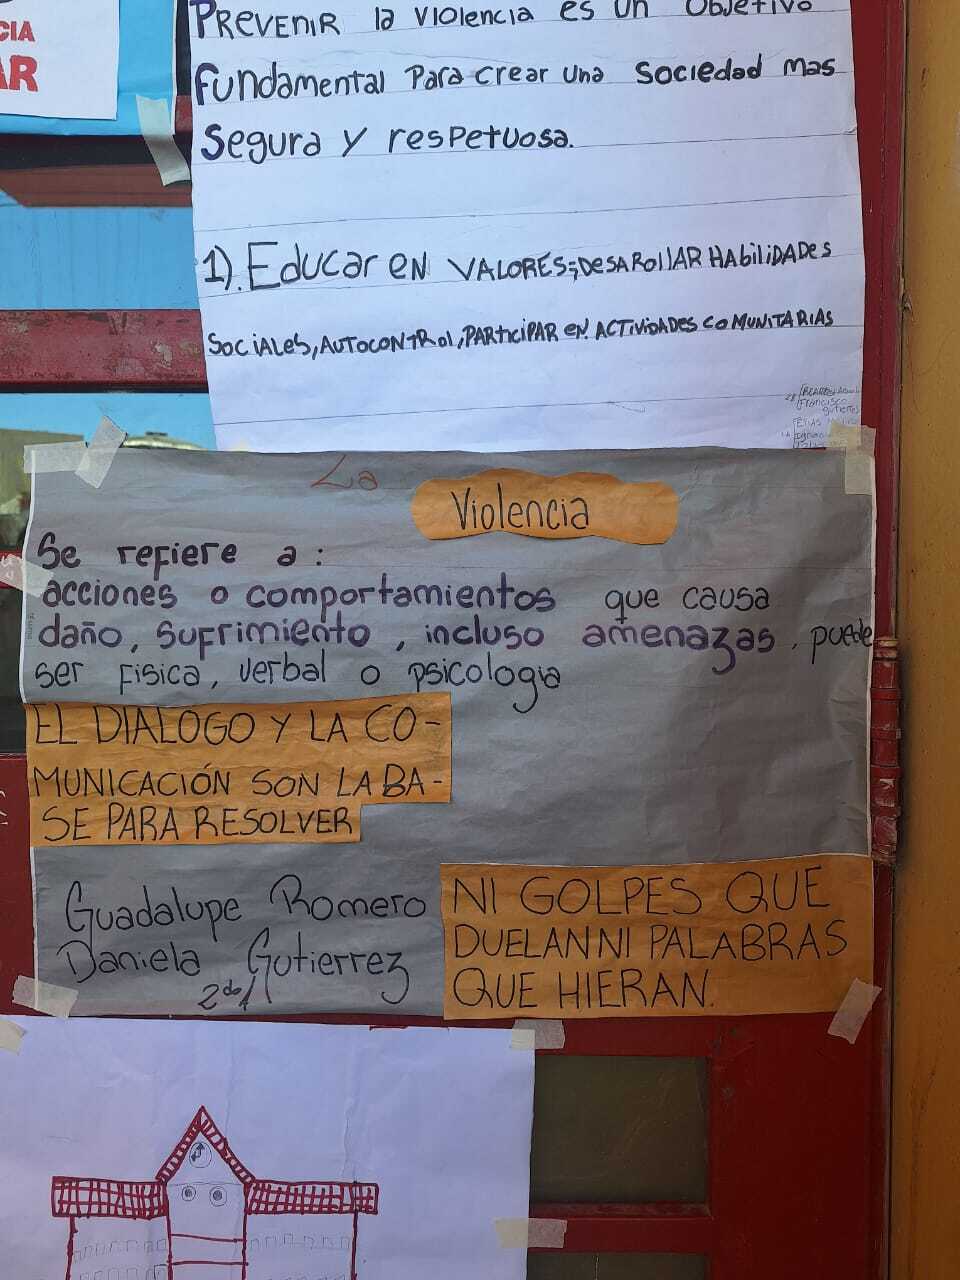 CIA
AR
PREVENIR la VIOLENCIA ES UN OBJETIVO
FUNDAMENTAL PARA CREAR UNA SOCIEDAD MAS
SEGURA Y RESPETUOSA.
1). Educar EN VALORES; DESAROLLAR HABILIDADES
SOCIALES, AUTOCONTROL, PARTICIPAR EN ACTIVIDADES COMUNITARIAS
Francisco
gutierres
La
Violencia
Se refiere a:
acciones o comportamientos que causa
daño, sufrimiento, incluso amenazas, puede
ser fisica, verbal o psicologia
EL DIALOGO Y LA CO-
MUNICACIÓN SON LA BA-
SE PARA RESOLVER
Guadalupe Romero
Daniela Gutierrez
2do 1
NI GOLPES QUE
DUELAN NI PALABRAS
QUE HIERAN.